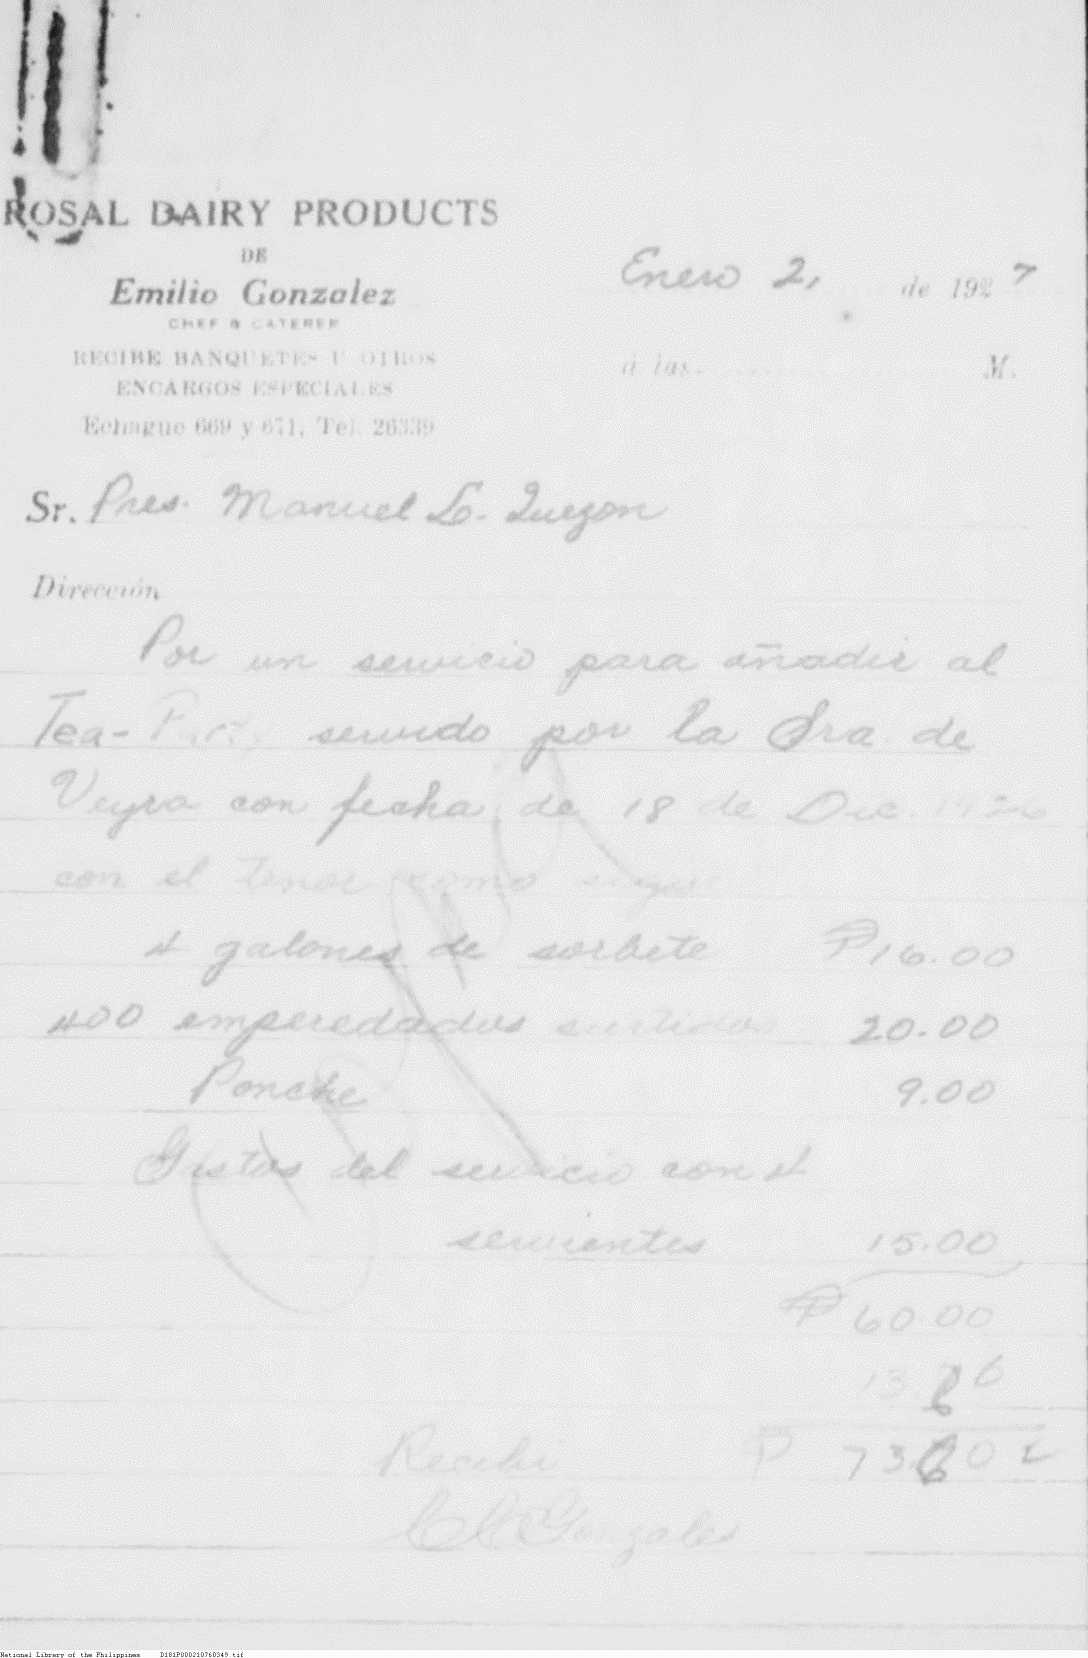 ROSAL DAIRY PRODUCTS
DE
Emilio Gonzalez
CHEF & CATERER
RECIBE BANQUETES U OTROS
ENCARGOS ESPECIALES
Echague 669 y 671, Tel. 26339
Enero 2, de 1927
á las M.
Sr. Pres. Manuel L. Quezon
Dirección
Por un servicio para añadir al
Tea-Party servido por la Sra. de
Veyra con fecha de 18 de Dic. 1926
con el tenor como sigue
4 galones de sorbete ₱16.00
400 emperedados surtidos 20.00
Ponche 9.00
Gastos del servicio con 4
servientes 15.00
₱ 60.00
13.60
Recibi ₱ 73.60
Gonzales
National Library of the Philippines D181P000210760349.tif